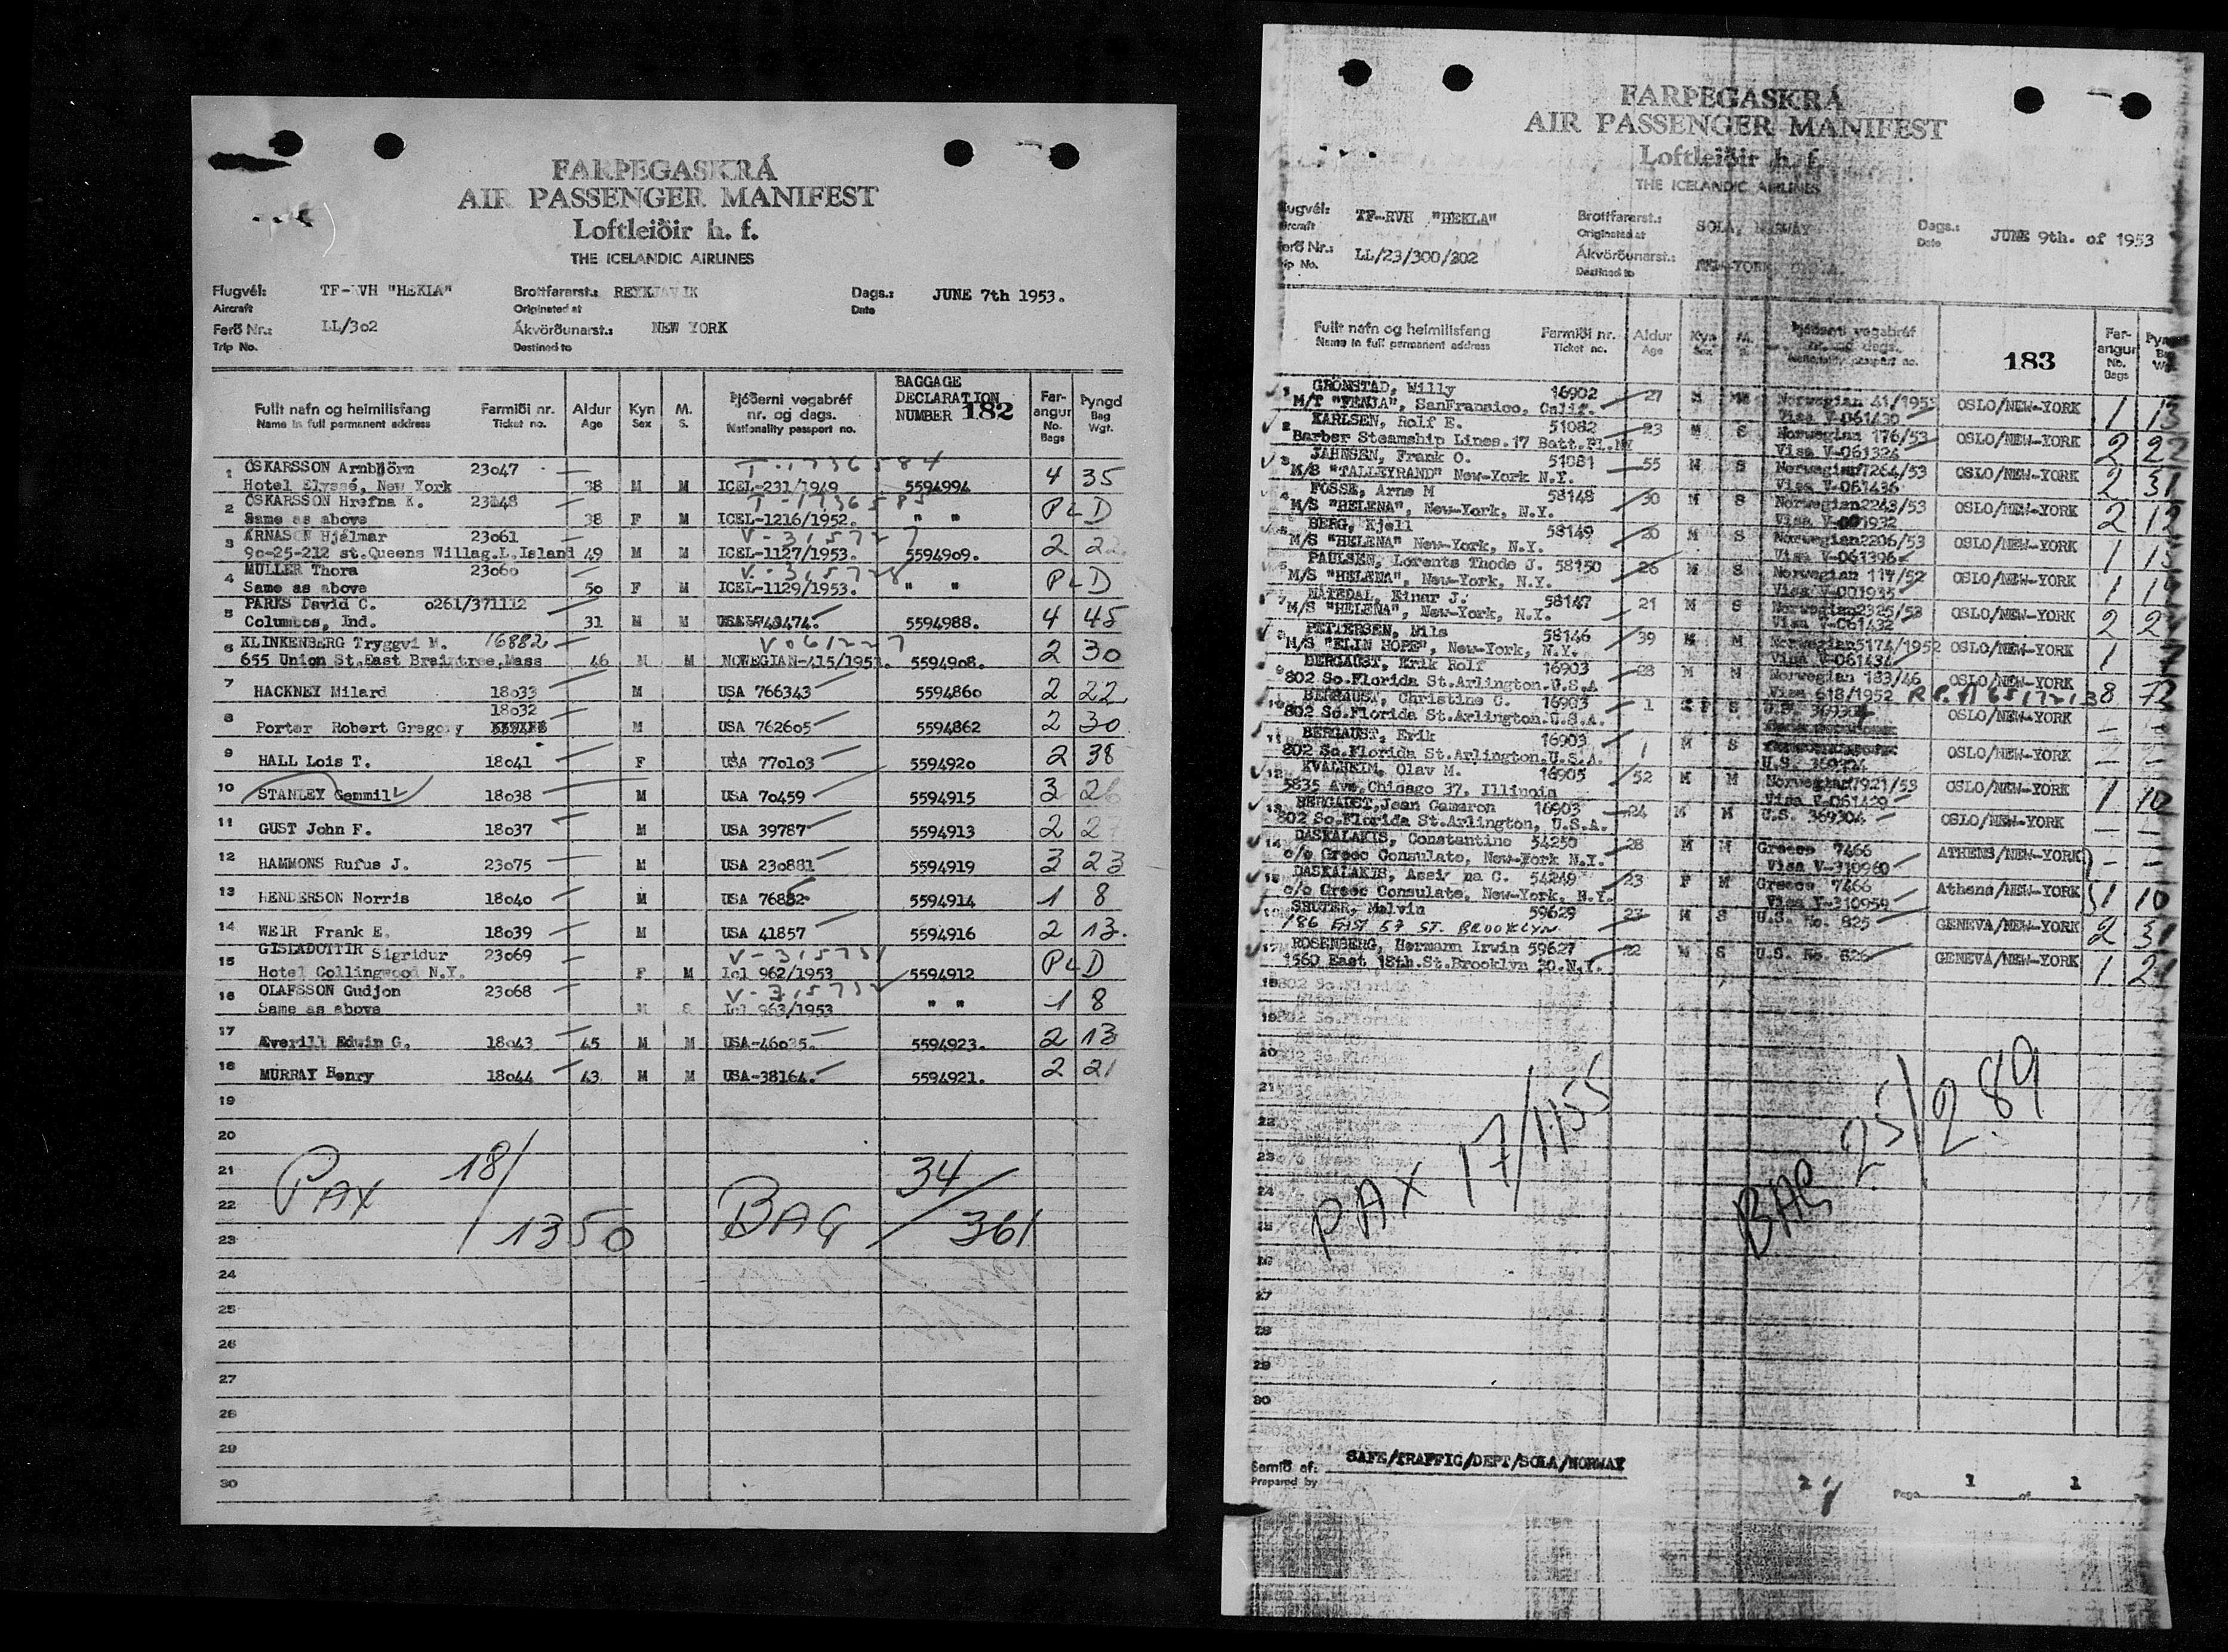 FARÞEGASKRÁ
AIR PASSENGER MANIFEST
Loftleiðir h. f.
THE ICELANDIC AIRLINES
Flugvél: TF-RVH "HEKLA" Brottfararst.: REYKJAVIK Dags.: JUNE 7th 1953.
Aircraft Originated at Date
Ferð Nr.: LL/302 Ákvörðunarst.: NEW YORK
Trip No. Destined to
Fullt nafn og heimilisfang Farmiði nr. Aldur Kyn M. Þjóðerni vegabréf nr. og dags. BAGGAGE DECLARATION NUMBER 182 Farangur Þyngd
Name in full permanent address Ticket no. Age Sex S. Nationality passport no. No. Bags Bag Wgt.
1 ÓSKARSSON Arnbjörn 23047 T-1736584
Hotel Elyssé, New York 38 M M ICEL-231/1949 5594994 4 35
2 ÓSKARSSON Hrefna K. 23048
Same as above 38 F M ICEL-1216/1952. " " PLD
3 ÁRNASON Hjálmar 23061 V-315727
90-25-212 st.Queens Willag.L.Island 49 M M ICEL-1127/1953. 5594909. 2 22
4 MULLER Thora 23060 V-315728
Same as above 50 F M ICEL-1129/1953. " " PLD
5 PARKS David C. 0261/371112
Columbos, Ind. 31 M M 5594988. 4 45
6 KLINKENBERG Tryggvi M. 16882 V061227
655 Union St.East Braintree,Mass 46 M M NOWEGIAN-415/1953. 5594908. 2 30
7 HACKNEY Milard 18033 M USA 766343 5594860 2 22
18032
8 Porter Robert Gregory M USA 762605 5594862 2 30
9 HALL Lois T. 18041 F USA 770103 5594920 2 38
10 STANLEY Gemmill 18038 M USA 70459 5594915 3 26
11 GUST John F. 18037 M USA 39787 5594913 2 21
12 HAMMONS Rufus J. 23075 M USA 230881 5594919 3 23
13 HENDERSON Norris 18040 M USA 76882 5594914 1 8
14 WEIR Frank E. 18039 M USA 41857 5594916 2 13.
15 GISLADOTTIR Sigridur 23069 V-315731
Hotel Collingwood N.Y. F M Icl 962/1953 5594912 PLD
16 OLAFSSON Gudjon 23068 V-315732
Same as above M S Icl 963/1953 " " 1 8
17 Æverill Edwin G. 18043 45 M M USA-46035. 5594923. 2 13
18 MURRAY Henry 18044 43 M M USA-38164. 5594921. 2 21
19
20
21
22
23
24
25
26
27
28
29
30
PAX 18/1350 BAG 34/361
FARÞEGASKRÁ
AIR PASSENGER MANIFEST
Loftleiðir h. f.
THE ICELANDIC AIRLINES
Flugvél: TF-RVH "HEKLA" Brottfararst.: SOLA, NORWAY Dags.: JUNE 9th. of 1953
Aircraft Originated at Date
Ferð Nr.: LL/23/300/302 Ákvörðunarst.: NEW-YORK,
Trip No. Destined to
Fullt nafn og heimilisfang Farmiði nr. Aldur Kyn M. Þjóðerni vegabréf nr. og dags. 183 Farangur Þyngd
Name in full permanent address Ticket no. Age Sex S. Nationality passport no. No. Bags Bag Wgt.
1 GRÖNSTAD, Willy 16902 27 M Norwegian 41/1953 OSLO/NEW-YORK 1 13
M/T "VENJA", SanFransico, Calif. Visa V-061430
2 KARLSEN, Rolf E. 51082 23 M S Norwegian 176/53 OSLO/NEW-YORK 2 22
Barber Steamship Lines.17 Batt.Pl.NY Visa V-061324
3 JAHNSEN, Frank O. 51081 55 M S Norwegian7264/53 OSLO/NEW-YORK 2 31
M/S "TALLEYRAND" New-York N.Y. Visa V-061436
4 FOSSE, Arne M 58148 30 M S Norwegian2243/53 OSLO/NEW-YORK 2 12
M/S "HELENA", New-York, N.Y. Visa V-001932
5 BERG, Kjell 58149 20 M S Norwegian2206/53 OSLO/NEW-YORK 1 15
M/S "HELENA" New-York, N.Y. Visa V-061396
6 PAULSEN, Lorents Thode J. 58150 26 M S Norwegian 117/52 OSLO/NEW-YORK 1
M/S "HELENA", New-York, N.Y. Visa V-001935
7 NATEDAL, Einar J. 58147 21 M S Norwegian2325/53 OSLO/NEW-YORK 2
M/S "HELENA", New-York, N.Y. Visa V-061432
8 PETTERSEN, Nils 58146 39 M M Norwegian5174/1952 OSLO/NEW-YORK 1
M/S "ELIN HOPE", New-York, N.Y. Visa V-061434
9 BERGAUST, Erik Rolf 16903 28 M M Norwegian 183/46 OSLO/NEW-YORK 8 72
802 So.Florida St.Arlington.U.S.A Visa 618/1952
10 BERGAUST, Christine C. 16903 1 F S U.S. 369304 OSLO/NEW-YORK - -
802 So.Florida St.Arlington.U.S.A.
11 BERGAUST, Erik 16903 1 M S OSLO/NEW-YORK - -
802 So.Florida St.Arlington.U.S.A. U.S. 369304
12 KVALHEIM, Olav M. 16905 52 M M Norwegian7921/53 OSLO/NEW-YORK 1 10
5835 Ave,Chicago 37, Illinois Visa V-061429
13 BERGAUST,Jean Cameron 16903 24 M M U.S. 369304 OSLO/NEW-YORK - -
802 So.Florida St.Arlington, U.S.A.
14 DASKALAKIS, Constantine 54250 28 M M Greece 7466 ATHENS/NEW-YORK - -
c/o Greec Consulate, New-York N.Y. Visa V-310960
15 DASKALAKIS, C. 54249 23 F M Greece 7466 Athens/NEW-YORK 1 10
c/o Greec Consulate, New-York, N.Y. Visa V-310959
16 SHUTER, Malvin 59629 23 M S U.S. No. 825 GENEVA/NEW-YORK 2 31
186 EAST 57 ST. BROOKLYN
17 ROSENBERG, Hermann Irwin 59627 22 M S U.S. No. 826 GENEVA/NEW-YORK 1 21
1560 East 18th.St.Brooklyn 30.N.Y.
18
19
20
21
22
23
24
25
26
27
28
29
30
PAX 17/1155 BAG 25/289
Samið af: SAFE/TRAFFIC/DEPT/SOLA/NORWAY
Prepared by Page 1 of 1